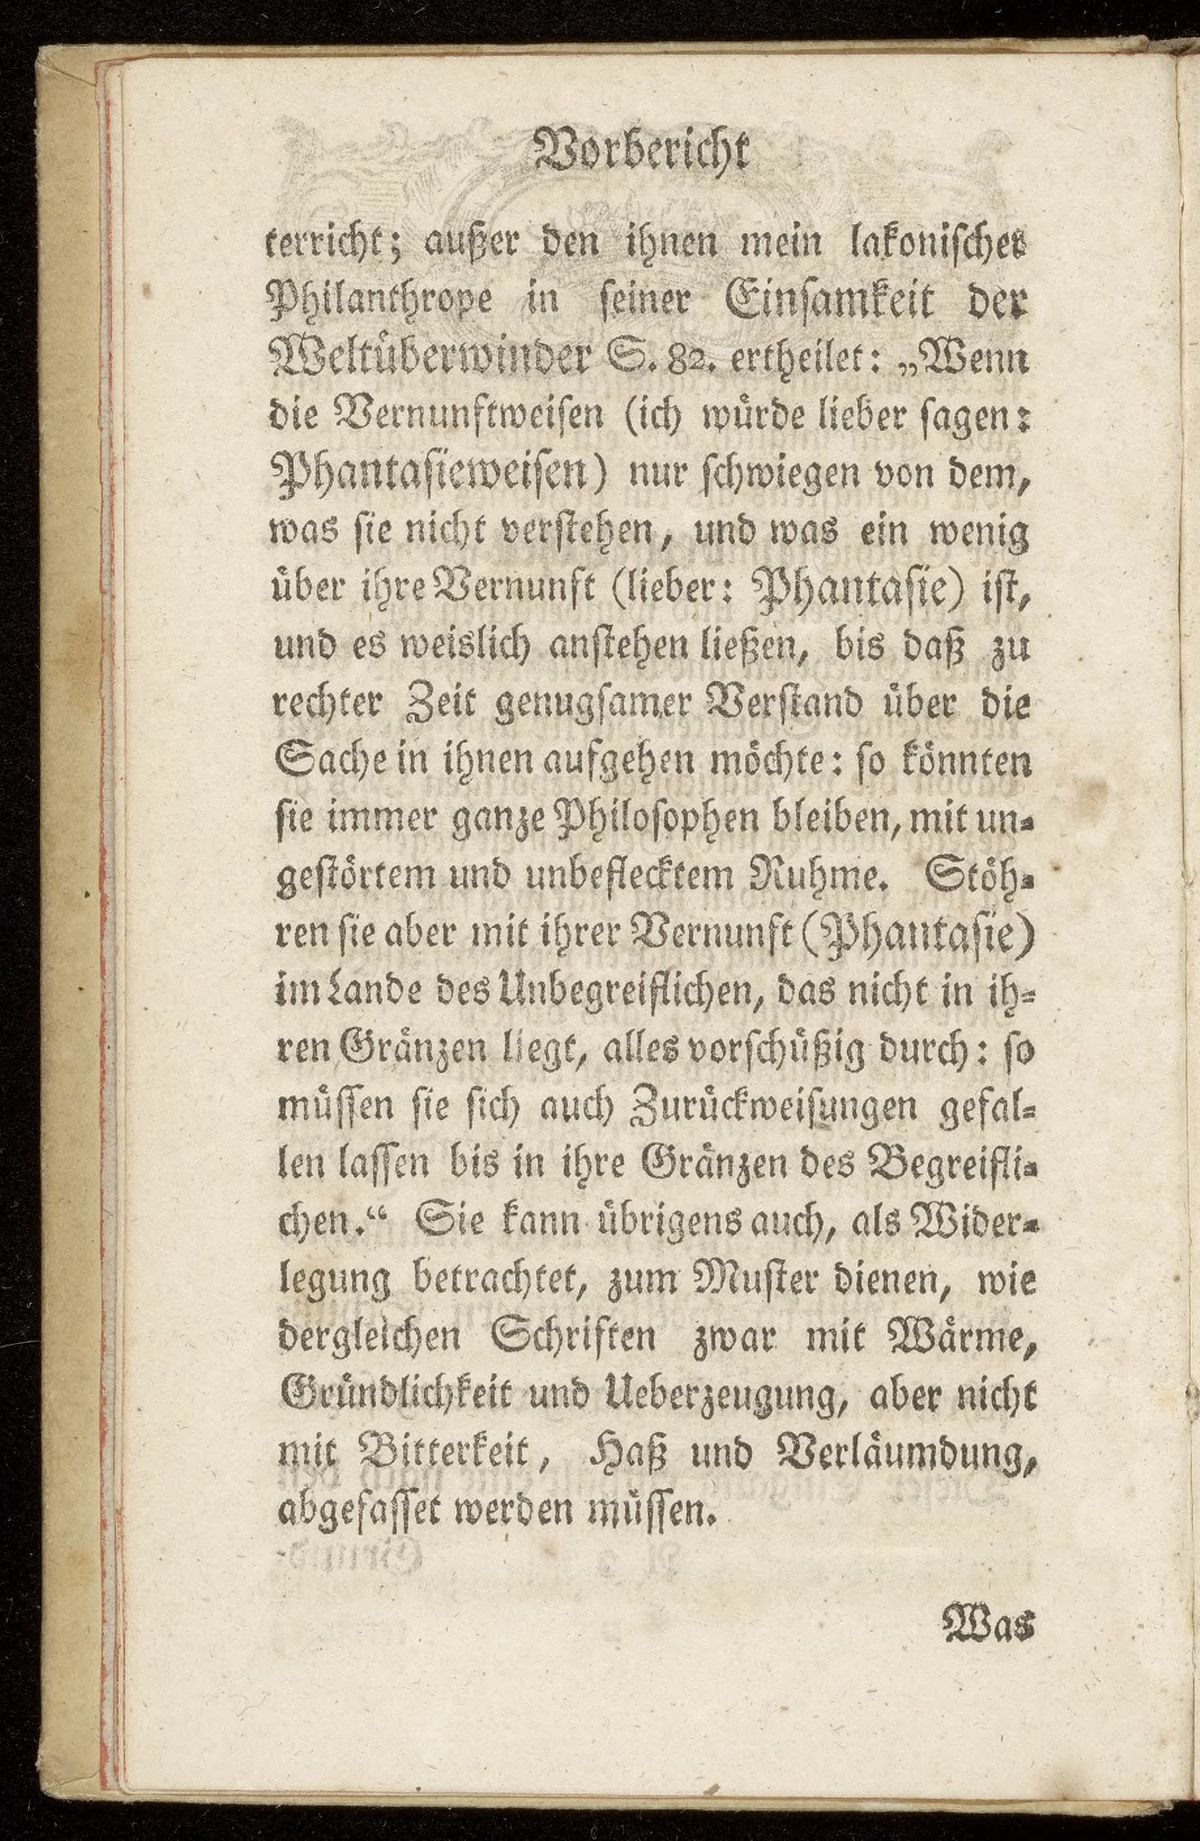 Vorbericht
terricht; außer den ihnen mein lakonischer
Philanthrope in seiner Einsamkeit der
Weltüberwinder S. 82. ertheilet: „Wenn
die Vernunftweisen (ich würde lieber sagen:
Phantasieweisen) nur schwiegen von dem,
was sie nicht verstehen, und was ein wenig
über ihre Vernunft (lieber: Phantasie) ist,
und es weislich anstehen ließen, bis daß zu
rechter Zeit genugsamer Verstand über die
Sache in ihnen aufgehen möchte: so könnten
sie immer ganze Philosophen bleiben, mit un-
gestörtem und unbeflecktem Ruhme. Stöh-
ren sie aber mit ihrer Vernunft (Phantasie)
im Lande des Unbegreiflichen, das nicht in ih-
ren Gränzen liegt, alles vorschüßig durch: so
müssen sie sich auch Zurückweisungen gefal-
len lassen bis in ihre Gränzen des Begreifli-
chen.“ Sie kann übrigens auch, als Wider-
legung betrachtet, zum Muster dienen, wie
dergleichen Schriften zwar mit Wärme,
Gründlichkeit und Ueberzeugung, aber nicht
mit Bitterkeit, Haß und Verläumdung,
abgefasset werden müssen.
Was